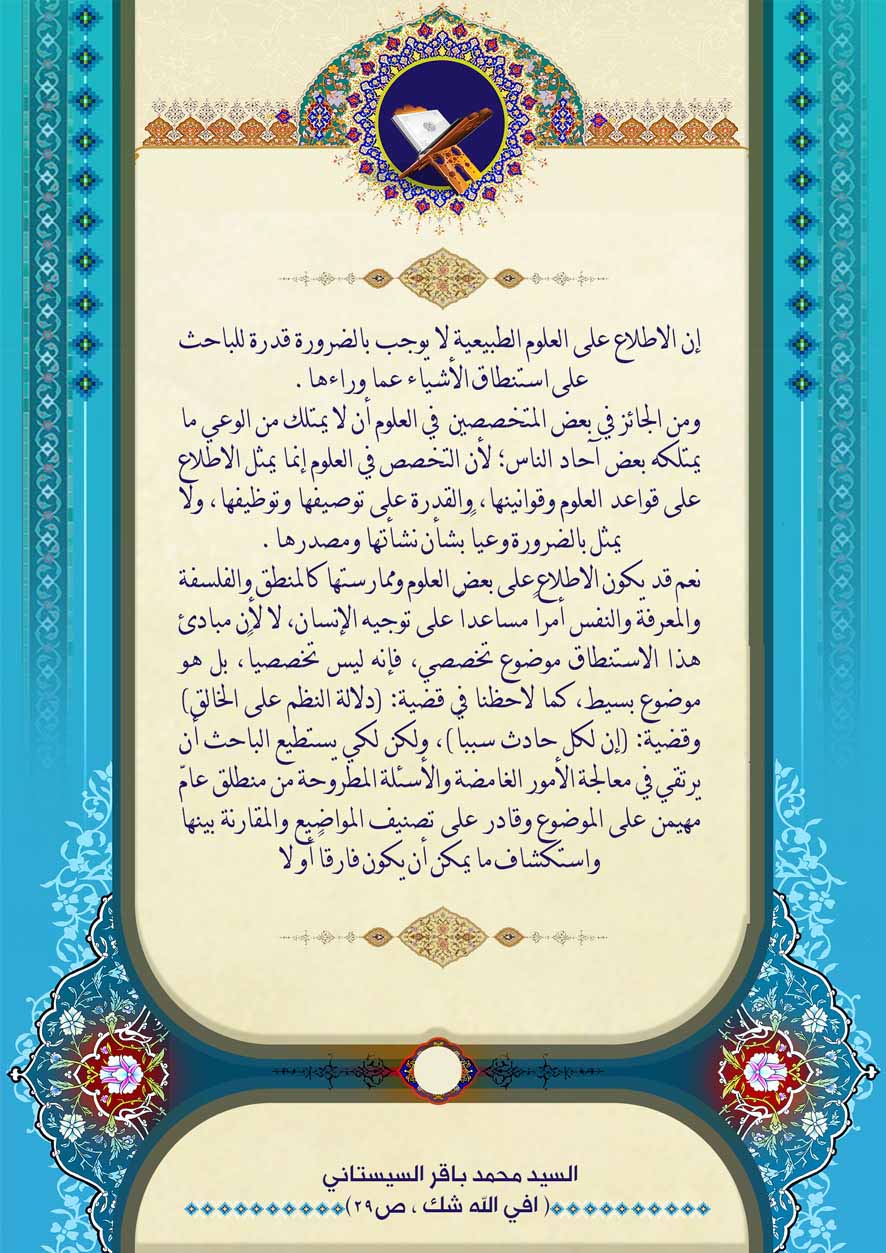 إن الاطلاع على العلوم الطبيعية لا يوجب بالضرورة قدرة للباحث
على استنطاق الأشياء عما وراءها .
ومن الجائز في بعض المتخصصين في العلوم أن لا يمتلك من الوعي ما
يمتلكه بعض آحاد الناس؛ لأن التخصص في العلوم إنما يمثل الاطلاع
على قواعد العلوم وقوانينها، والقدرة على توصيفها وتوظيفها، ولا
يمثل بالضرورة وعياً بشأن نشأتها ومصدرها .
نعم قد يكون الاطلاع على بعض العلوم وممارستها كالمنطق والفلسفة
والمعرفة والنفس أمراً مساعداً على توجيه الإنسان، لا لأن مبادئ
هذا الاستنطاق موضوع تخصصي، فإنه ليس تخصصياً، بل هو
موضوع بسيط، كما لاحظنا في قضية: (دلالة النظم على الخالق)
وقضية: (إن لكل حادث سببا)، ولكن لكي يستطيع الباحث أن
يرتقي في معالجة الأمور الغامضة والأسئلة المطروحة من منطلق عامّ
مهيمن على الموضوع وقادر على تصنيف المواضيع والمقارنة بينها
واستكشاف ما يمكن أن يكون فارقاً أو لا
السيد محمد باقر السيستاني
( افي الله شك ، ص٢٩)